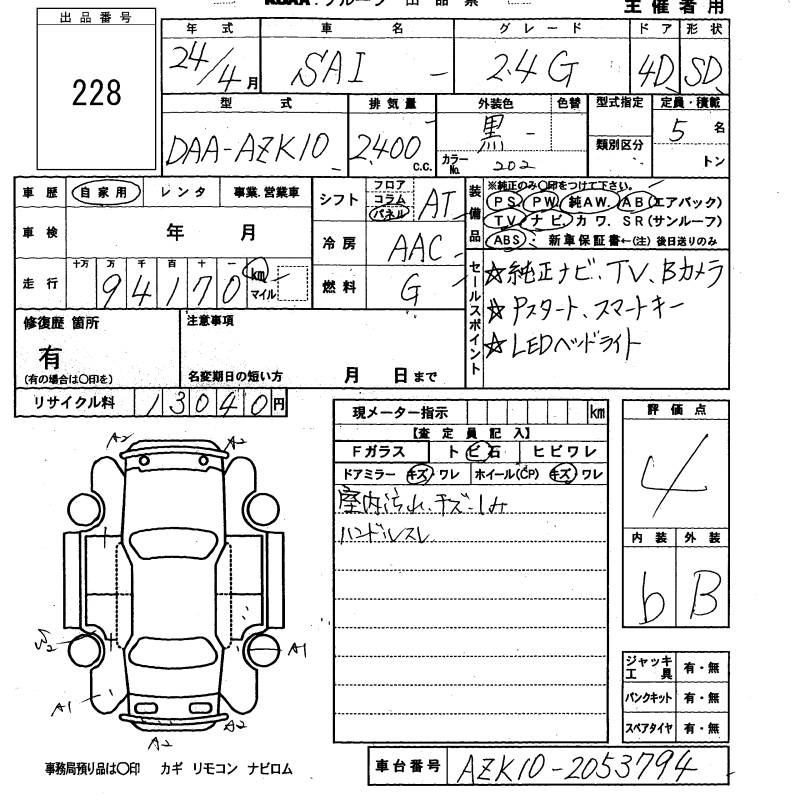 主催者用
出品番号
228
年式 車名 グレード ドア 形状
24/4月 SAI - 2.4G 4D SD
型式 排気量 外装色 色替 型式指定 定員・積載
DAA-AZK10 2,400 c.c. 黒 - 類別区分 5名
カラーNo. 202 トン
車歴 自家用 レンタ 事業.営業車
シフト フロア コラム パネル AT
装備品 ※純正のみ○印をつけて下さい。
PS. PW. 純AW. AB(エアバック)
TV. ナビ. カワ. SR(サンルーフ)
ABS. 新車保証書←(注)後日送りのみ
車検 年 月
冷房 AAC
走行 十万 万 千 百 十 一
94170 km マイル
燃料 G
セールスポイント
☆純正ナビ、TV、Bカメラ
☆Pスタート、スマートキー
☆LEDヘッドライト
修復歴 箇所
有
(有の場合は○印を)
注意事項
名変期日の短い方 月 日まで
リサイクル料 13040円
現メーター指示 km
【査定員記入】
Fガラス トビ石 ヒビワレ
ドアミラー キズ ワレ ホイール(CP) キズ ワレ
室内汚れ・キズ・シミ
ハンドルスレ
評価点
4
内装 外装
b B
A2 A2
W2 A1
A1 A2
A2
ジャッキ工具 有・無
パンクキット 有・無
スペアタイヤ 有・無
事務局預り品は○印 カギ リモコン ナビロム
車台番号 AZK10-2053794